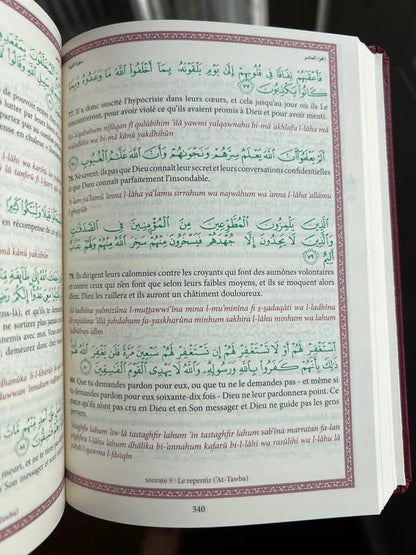 الجزء العاشر
فَأَعْقَبَهُمْ نِفَاقًا فِى قُلُوبِهِمْ إِلَىٰ يَوْمِ يَلْقَوْنَهُۥ بِمَآ أَخْلَفُوا۟ ٱللَّهَ مَا وَعَدُوهُ وَبِمَا
كَانُوا۟ يَكْذِبُونَ ٧٧
77. Il a donc suscité l'hypocrisie dans leurs cœurs, et cela jusqu'au jour où ils Le
rencontreront, pour avoir violé ce qu'ils avaient promis à Dieu et pour avoir menti.
Fa-'a‘qabahum nifâqan fî qulûbihim 'ilâ yawmi yalqawnahu bi-mâ 'akhlafu l-lâha mâ
wa‘adûhu wa bimâ kânû yakdhibûn
أَلَمْ يَعْلَمُوٓا۟ أَنَّ ٱللَّهَ يَعْلَمُ سِرَّهُمْ وَنَجْوَىٰهُمْ وَأَنَّ ٱللَّهَ عَلَّـٰمُ ٱلْغُيُوبِ ٧٨
78. Ne savent-ils pas que Dieu connaît leur secret et leurs conversations confidentielles
et que Dieu connaît parfaitement l'Insondable.
'A-lam ya‘lamû 'anna l-lâha ya‘lamu sirrahum wa najwâhum wa 'anna l-lâha ‘allâmu
l-ghuyûb
ٱلَّذِينَ يَلْمِزُونَ ٱلْمُطَّوِّعِينَ مِنَ ٱلْمُؤْمِنِينَ فِى ٱلصَّدَقَـٰتِ
وَٱلَّذِينَ لَا يَجِدُونَ إِلَّا جُهْدَهُمْ فَيَسْخَرُونَ مِنْهُمْ سَخِرَ ٱللَّهُ مِنْهُمْ وَلَهُمْ عَذَابٌ
أَلِيمٌ ٧٩
79. Ils dirigent leurs calomnies contre les croyants qui font des aumônes volontaires
et contre ceux qui n'en font que selon leurs faibles moyens, et ils se moquent alors
d'eux. Dieu les raillera et ils auront un châtiment douloureux.
'al-ladhîna yalmizûna l-muṭṭawwi‘îna mina l-mu'minîna fi ṣ-ṣadaqâti wa l-ladhîna
lâ yajidûna 'illâ juhdahum fa-yaskharûna minhum sakhira l-lâhu minhum wa lahum
‘adhâbun 'alîm
ٱسْتَغْفِرْ لَهُمْ أَوْ لَا تَسْتَغْفِرْ لَهُمْ إِن تَسْتَغْفِرْ لَهُمْ سَبْعِينَ مَرَّةً فَلَن يَغْفِرَ ٱللَّهُ لَهُمْ
ذَٰلِكَ بِأَنَّهُمْ كَفَرُوا۟ بِٱللَّهِ وَرَسُولِهِۦ وَٱللَّهُ لَا يَهْدِى ٱلْقَوْمَ ٱلْفَـٰسِقِينَ ٨٠
80. Que tu demandes pardon pour eux, ou que tu ne le demandes pas - et même si
tu demandes pardon pour eux soixante-dix fois - Dieu ne leur pardonnera point. Ce
parce qu'ils n'ont pas cru en Dieu et en Son messager et Dieu ne guide pas les gens
pervers.
'istaghfir lahum 'aw lâ tastaghfir lahum 'in tastaghfir lahum sab‘îna marratan fa-lan
yaghfira l-lâhu lahum dhâlika bi-'annahum kafarû bi-l-lâhi wa rasûlihi wa l-lâhu lâ
yahdi l-qawma l-fâsiqîn
sourate 9 : Le repentir ('At-Tawba)
340